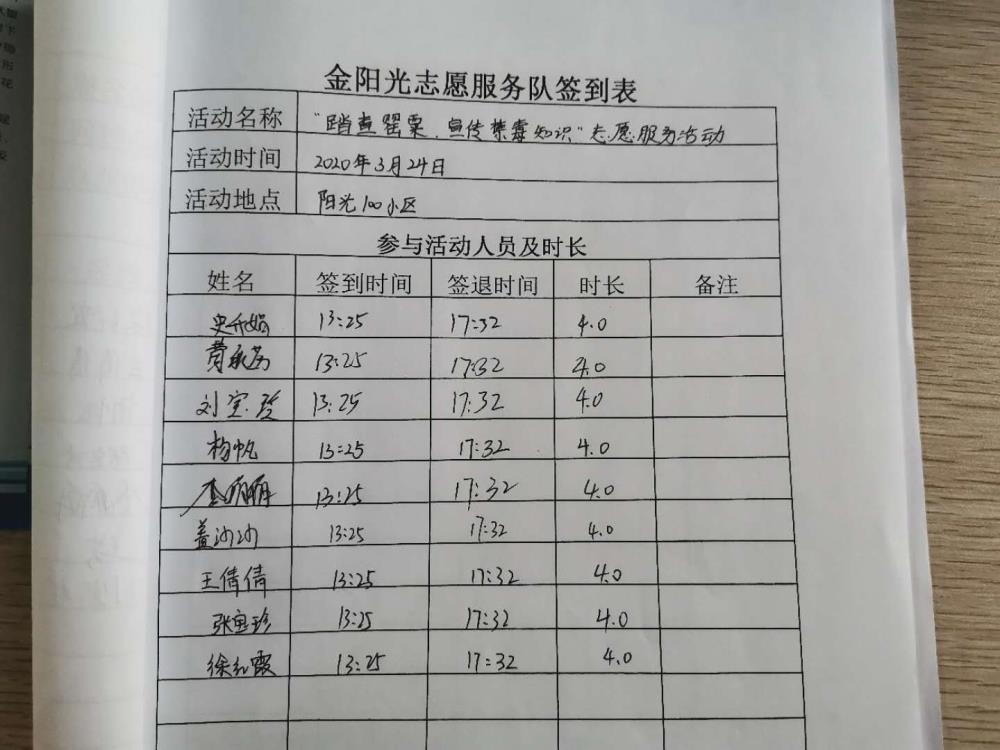 金阳光志愿服务队签到表
活动名称 "踏查罂粟、宣传禁毒知识"志愿服务活动
活动时间 2020年3月24日
活动地点 阳光100小区
参与活动人员及时长
姓名 签到时间 签退时间 时长 备注
史 13:25 17:32 4.0
13:25 17:32 4.0
刘宝玲 13:25 17:32 4.0
杨帆 13:25 17:32 4.0
13:25 17:32 4.0
盖沙沙 13:25 17:32 4.0
王倩倩 13:25 17:32 4.0
张宝珍 13:25 17:32 4.0
徐红霞 13:25 17:32 4.0